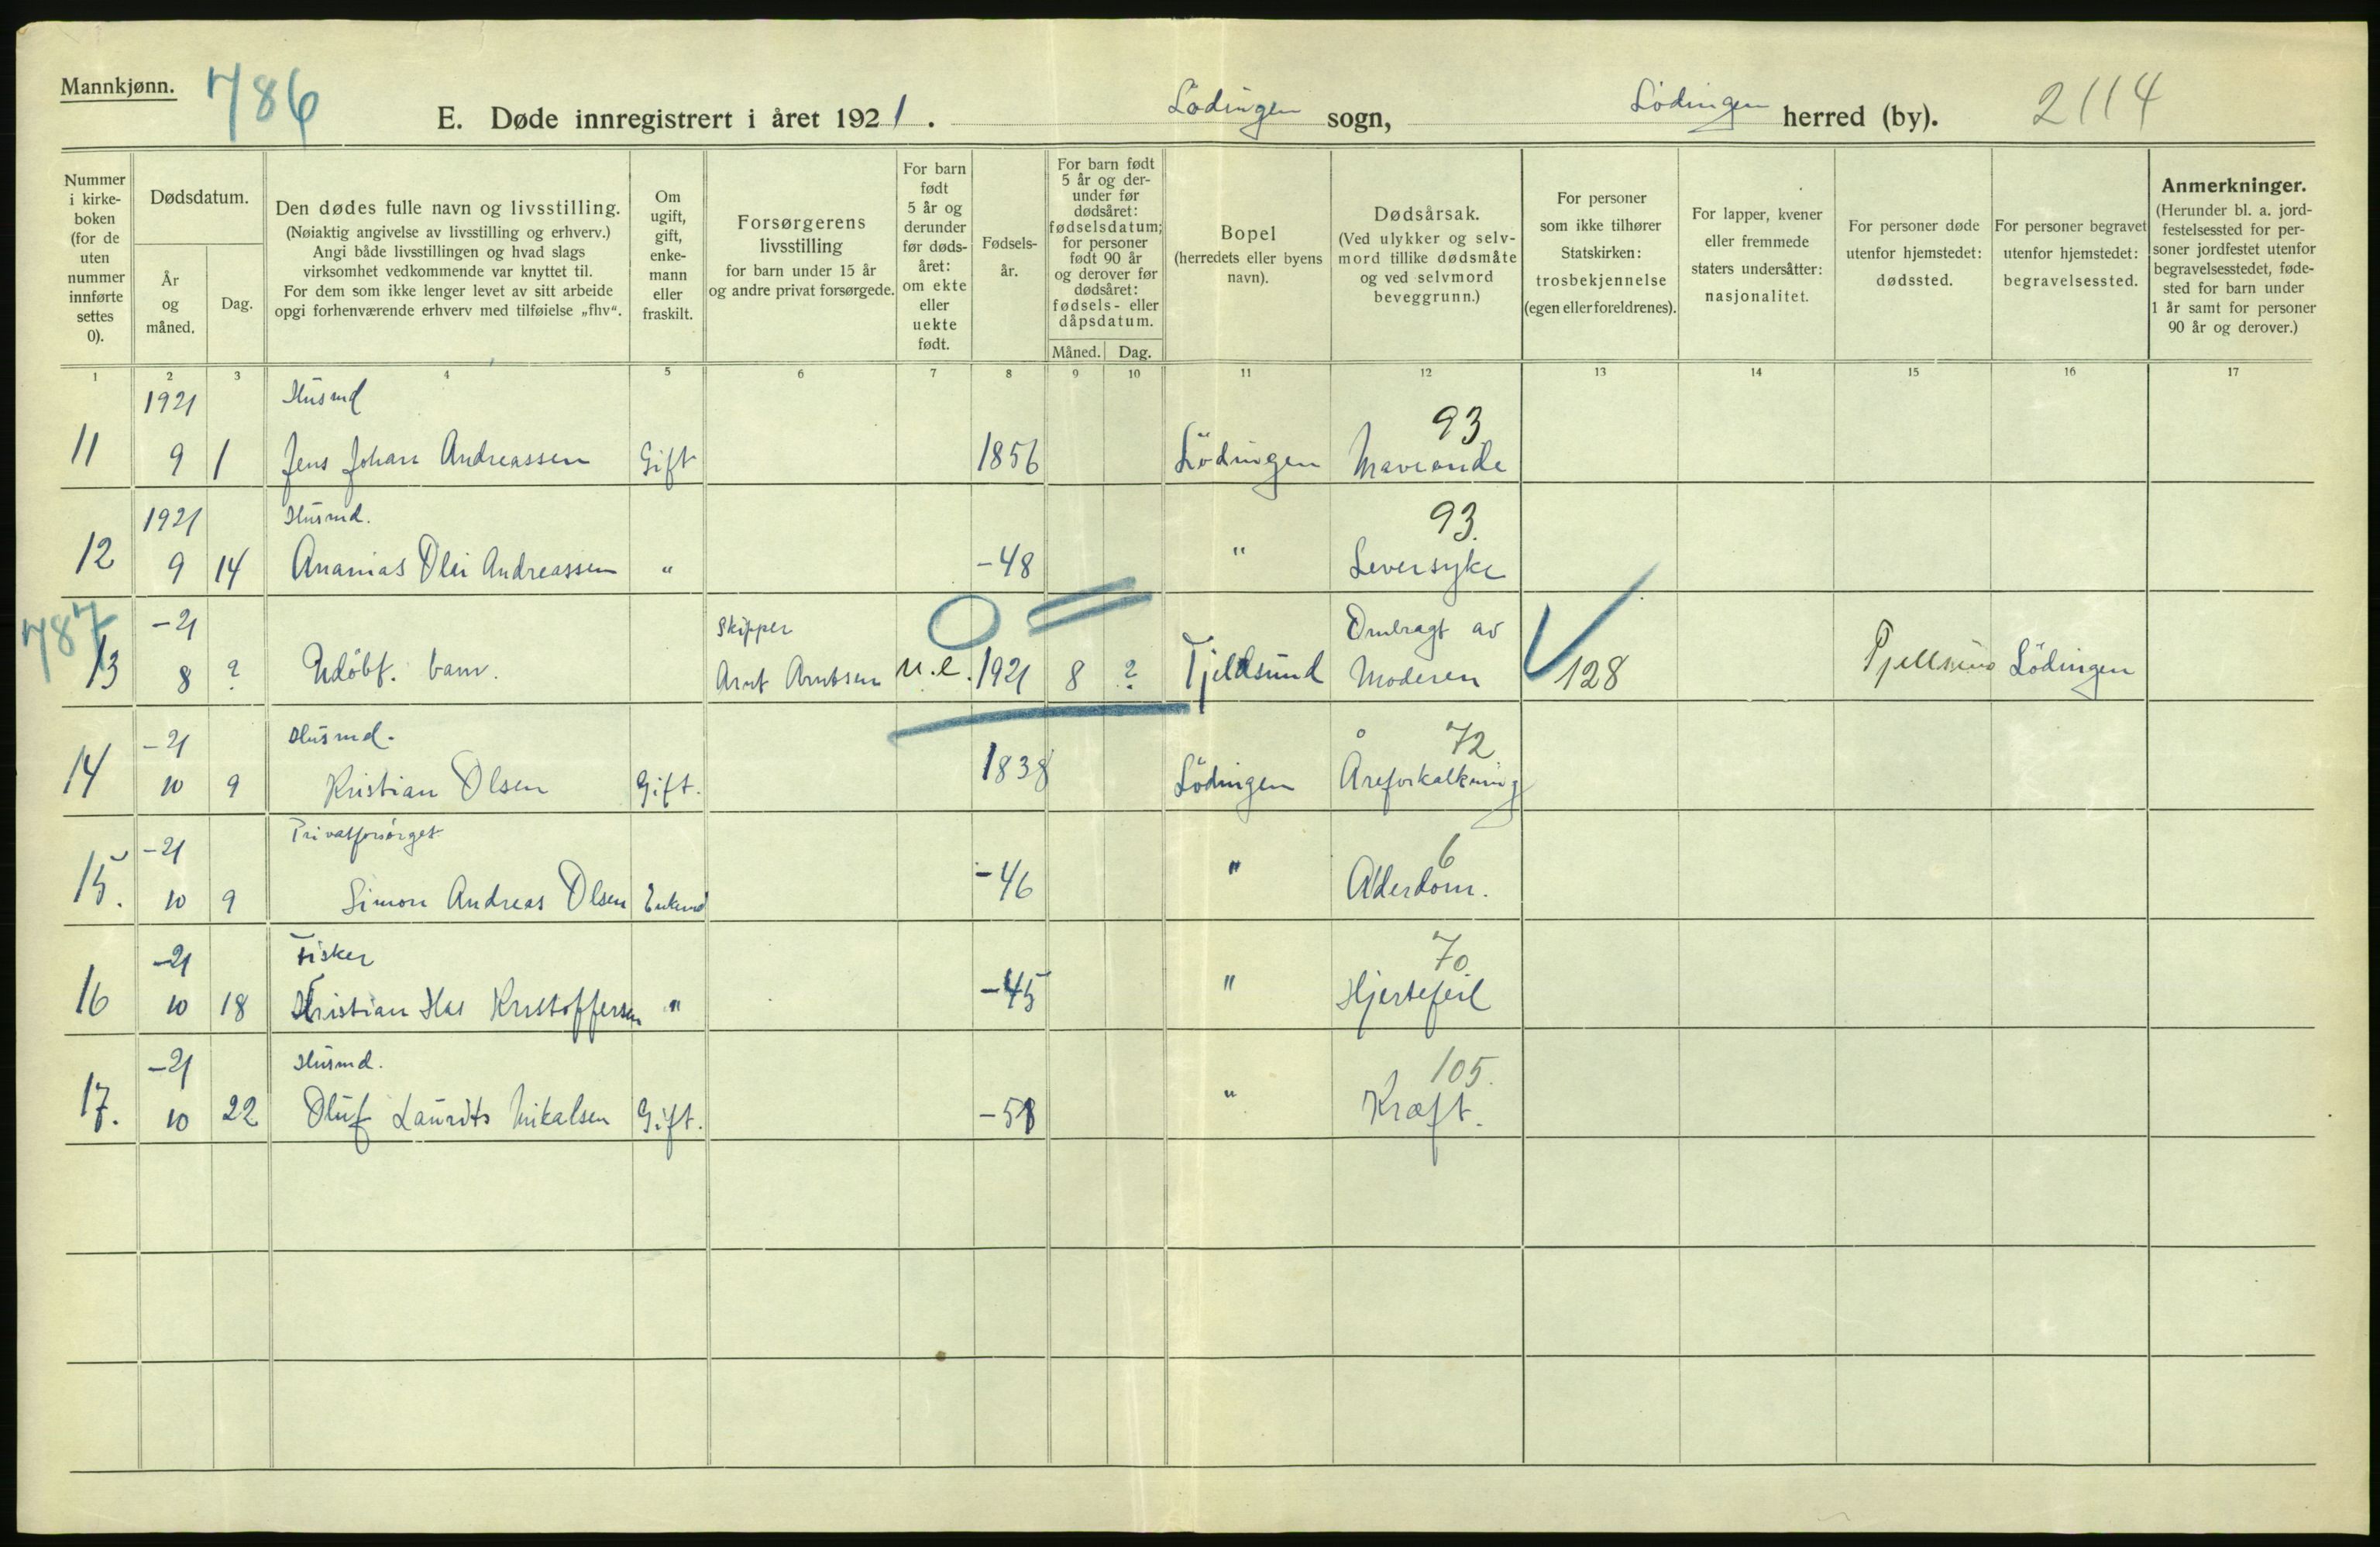 Mannkjønn.
786
E. Døde innregistrert i året 1921. Lödingen sogn, Lödingen herred (by).
2114
Nummer i kirkeboken (for de uten nummer innførte settes 0).
Dødsdatum.
År og måned.
Dag.
Den dødes fulle navn og livsstilling.
(Nøiaktig angivelse av livsstilling og erhverv.)
Angi både livsstillingen og hvad slags
virksomhet vedkommende var knyttet til.
For dem som ikke lenger levet av sitt arbeide
opgi forhenværende erhverv med tilføielse „fhv“.
Om ugift, gift, enkemann eller fraskilt.
Forsørgerens livsstilling
for barn under 15 år
og andre privat forsørgede.
For barn født 5 år og derunder før dødsåret: om ekte eller uekte født.
Fødselsår.
For barn født 5 år og derunder før dødsåret: fødselsdatum; for personer født 90 år og derover før dødsåret: fødsels- eller dåpsdatum.
Måned. Dag.
Bopel
(herredets eller byens navn).
Dødsårsak.
(Ved ulykker og selvmord tillike dødsmåte og ved selvmord beveggrunn.)
For personer som ikke tilhører Statskirken: trosbekjennelse (egen eller foreldrenes).
For lapper, kvener eller fremmede staters undersåtter: nasjonalitet.
For personer døde utenfor hjemstedet: dødssted.
For personer begravet utenfor hjemstedet: begravelsessted.
Anmerkninger.
(Herunder bl. a. jordfestelsessted for personer jordfestet utenfor begravelsesstedet, fødested for barn under 1 år samt for personer 90 år og derover.)
1 2 3 4 5 6 7 8 9 10 11 12 13 14 15 16 17
1921 Husmd 93
11 9 1 Jens Johan Andreassen Gift 1856 Lödingen Mavronde
1921 Husmd. 93.
12 9 14 Ananias Olai Andreassen " -48 " Leversyke
787 -21 Skipper Ombragt av
13 8 ? Udöbt. barn. Arnt Arntsen u.e. 1921 8 ? Tjeldsund Moderen 128 Tjellsund Lödingen
-21 Husmd. 72
14 10 9 Kristian Olsen Gift. 1838 Lödingen Åreforkalkning
-21 Privatforsörget 6
15. 10 9 Simon Andreas Olsen Enkmd -46 " Alderdom.
-21 Fisker 70
16 10 18 Kristian Has Kristoffersen " -45 " Hjertefeil
-21 Husmd. 105.
17. 10 22 Oluf Laurits Mikalsen Gift. -58 " Kræft.